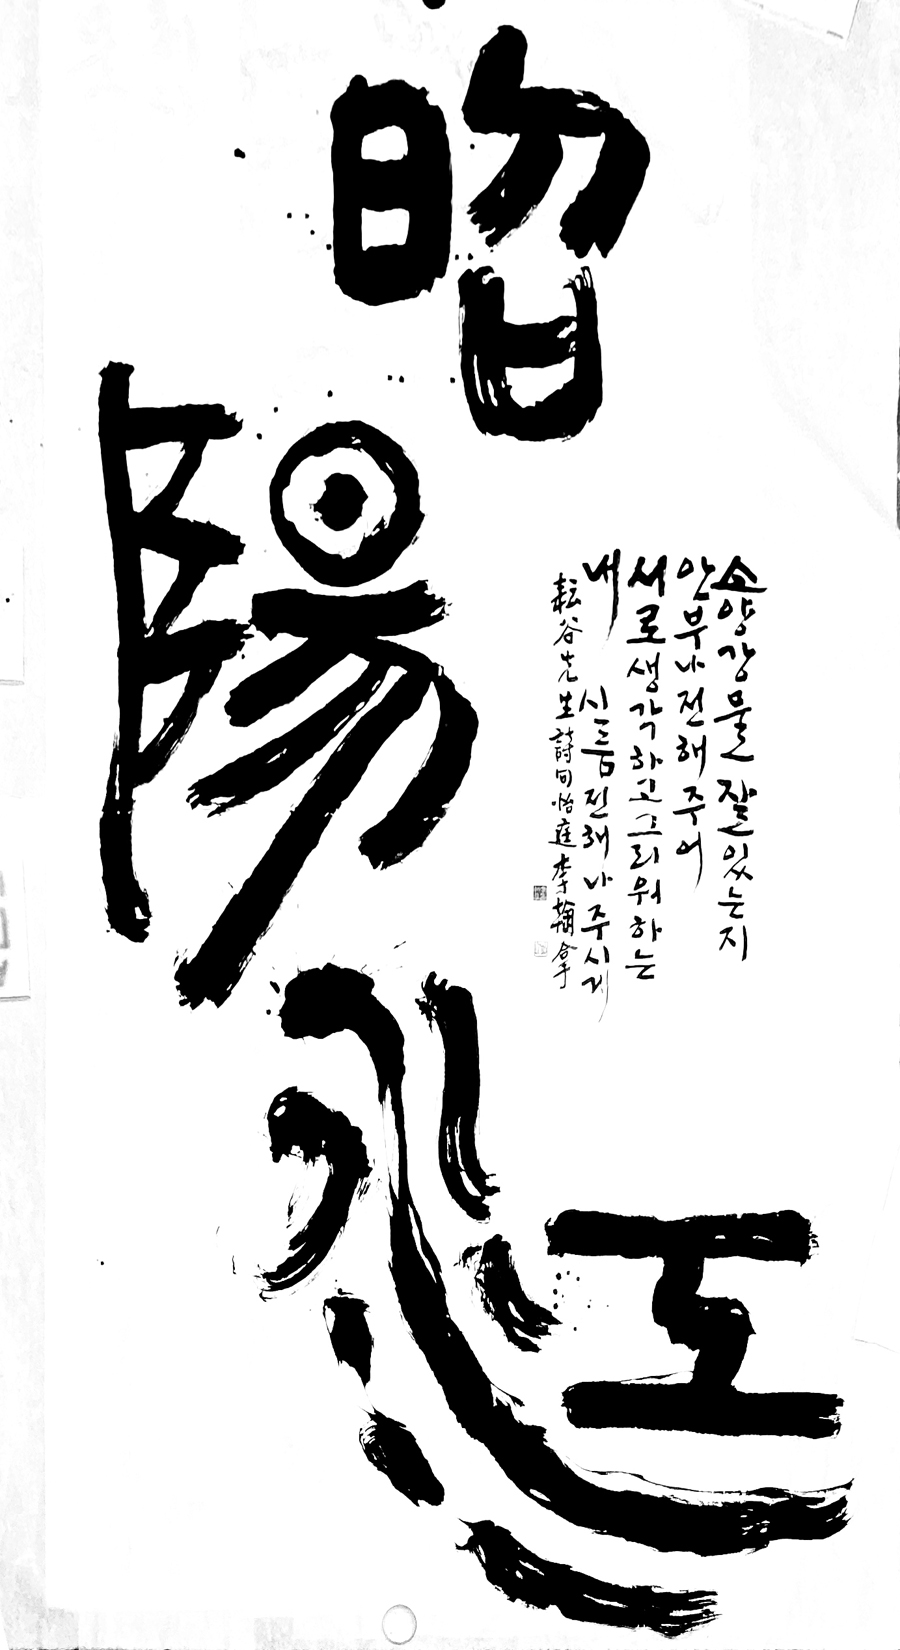 昭
陽
江
소양강물 잘 있는지
안부나 전해주어
서로 생각하고 그리워하는
내 시름 전해나 주시게
耘谷先生詩句 怡庭 李翰拿